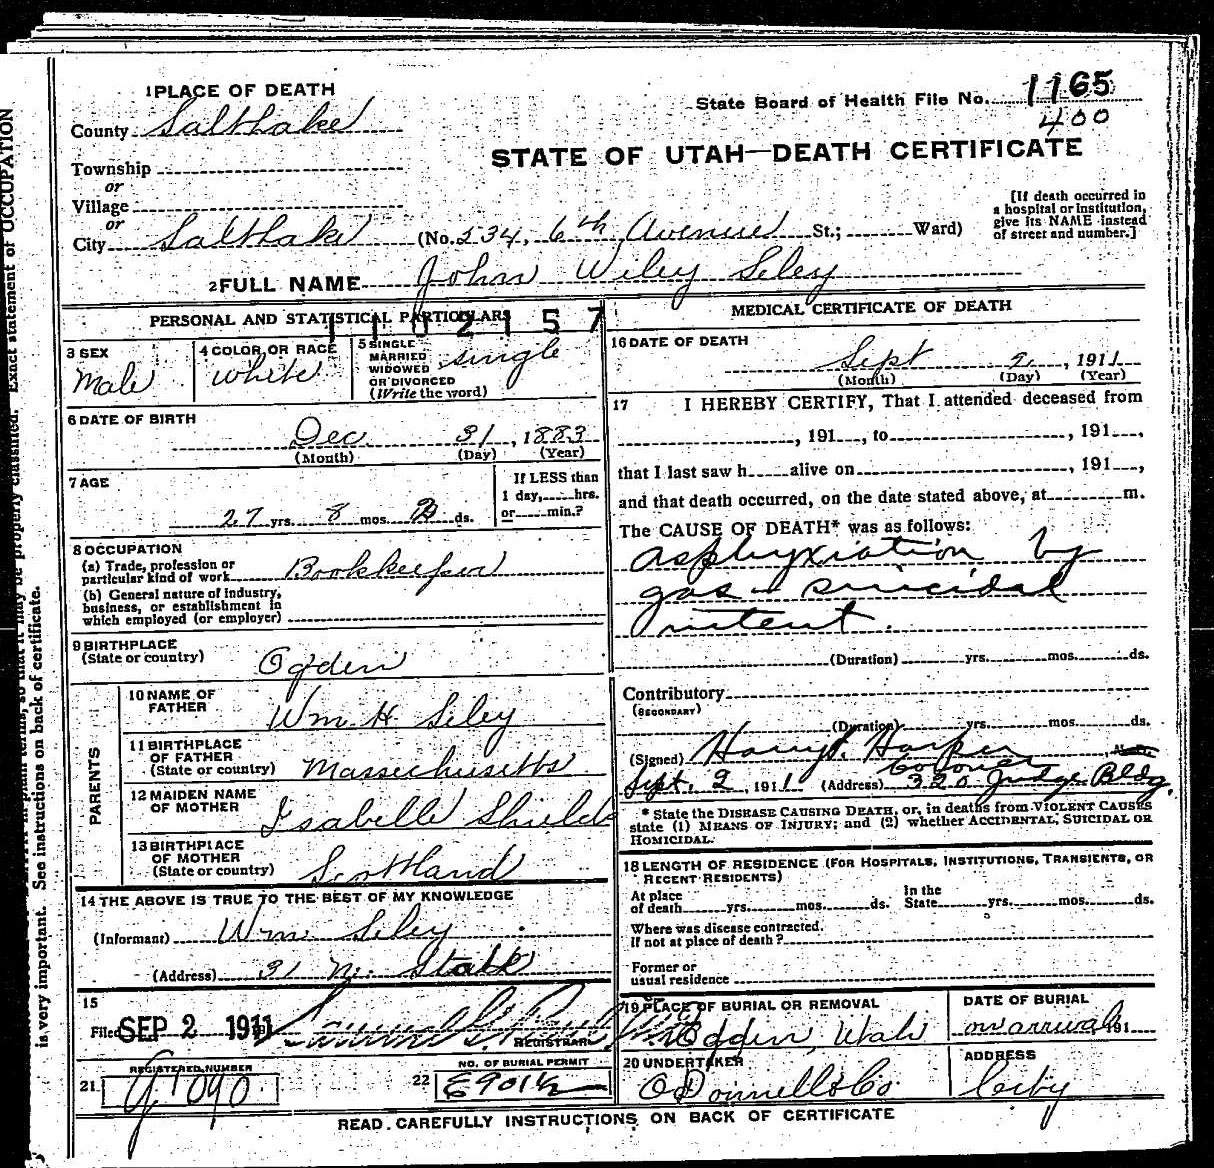 1 PLACE OF DEATH
State Board of Health File No. 1165
400
County Salt Lake
STATE OF UTAH—DEATH CERTIFICATE
Township
or
Village
or
City Salt Lake (No. 534, 6th Avenue St.; Ward)
[If death occurred in
a hospital or institution,
give its NAME instead
of street and number.]
2 FULL NAME John Wiley Seley
PERSONAL AND STATISTICAL PARTICULARS
1102157
3 SEX
Male
4 COLOR OR RACE
White
5 SINGLE
MARRIED
WIDOWED
OR DIVORCED
(Write the word)
single
6 DATE OF BIRTH
Dec. 31, 1883
(Month) (Day) (Year)
7 AGE
27 yrs. 8 mos. 2 ds.
If LESS than
1 day, hrs.
or min.?
8 OCCUPATION
(a) Trade, profession or
particular kind of work Bookkeeper
(b) General nature of industry,
business, or establishment in
which employed (or employer)
9 BIRTHPLACE
(State or country)
Ogden
PARENTS
10 NAME OF
FATHER
Wm H. Seley
11 BIRTHPLACE
OF FATHER
(State or country)
Massechusetts
12 MAIDEN NAME
OF MOTHER
Isabelle Shields
13 BIRTHPLACE
OF MOTHER
(State or country)
Scottland
14 THE ABOVE IS TRUE TO THE BEST OF MY KNOWLEDGE
(Informant) Wm. Seley
(Address) 31 N. State
15
Filed SEP 2 1911
REGISTRAR
REGISTERED NUMBER
21 G 1090
NO. OF BURIAL PERMIT
22
MEDICAL CERTIFICATE OF DEATH
16 DATE OF DEATH
Sept 2, 1911
(Month) (Day) (Year)
17 I HEREBY CERTIFY, That I attended deceased from
, 191 , to , 191 ,
that I last saw h alive on , 191 ,
and that death occurred, on the date stated above, at m.
The CAUSE OF DEATH* was as follows:
Asphyxiation by
gas - suicidal
intent.
(Duration) yrs. mos. ds.
Contributory
(SECONDARY)
(Duration) yrs. mos. ds.
(Signed) Harry S. Harper M. D.
Coroner
Sept. 2, 1911 (Address) 320 Judge Bldg.
* State the DISEASE CAUSING DEATH, or, in deaths from VIOLENT CAUSES
state (1) MEANS OF INJURY; and (2) whether ACCIDENTAL, SUICIDAL OR
HOMICIDAL.
18 LENGTH OF RESIDENCE (FOR HOSPITALS, INSTITUTIONS, TRANSIENTS, OR
RECENT RESIDENTS)
At place
of death yrs. mos. ds.
In the
State yrs. mos. ds.
Where was disease contracted.
If not at place of death?
Former or
usual residence
19 PLACE OF BURIAL OR REMOVAL
Ogden, Utah
DATE OF BURIAL
on arrival 191
20 UNDERTAKER
O'Donnell & Co.
ADDRESS
City
READ CAREFULLY INSTRUCTIONS ON BACK OF CERTIFICATE
is very important. See instructions on back of certificate.
properly classified. Exact statement of OCCUPATION